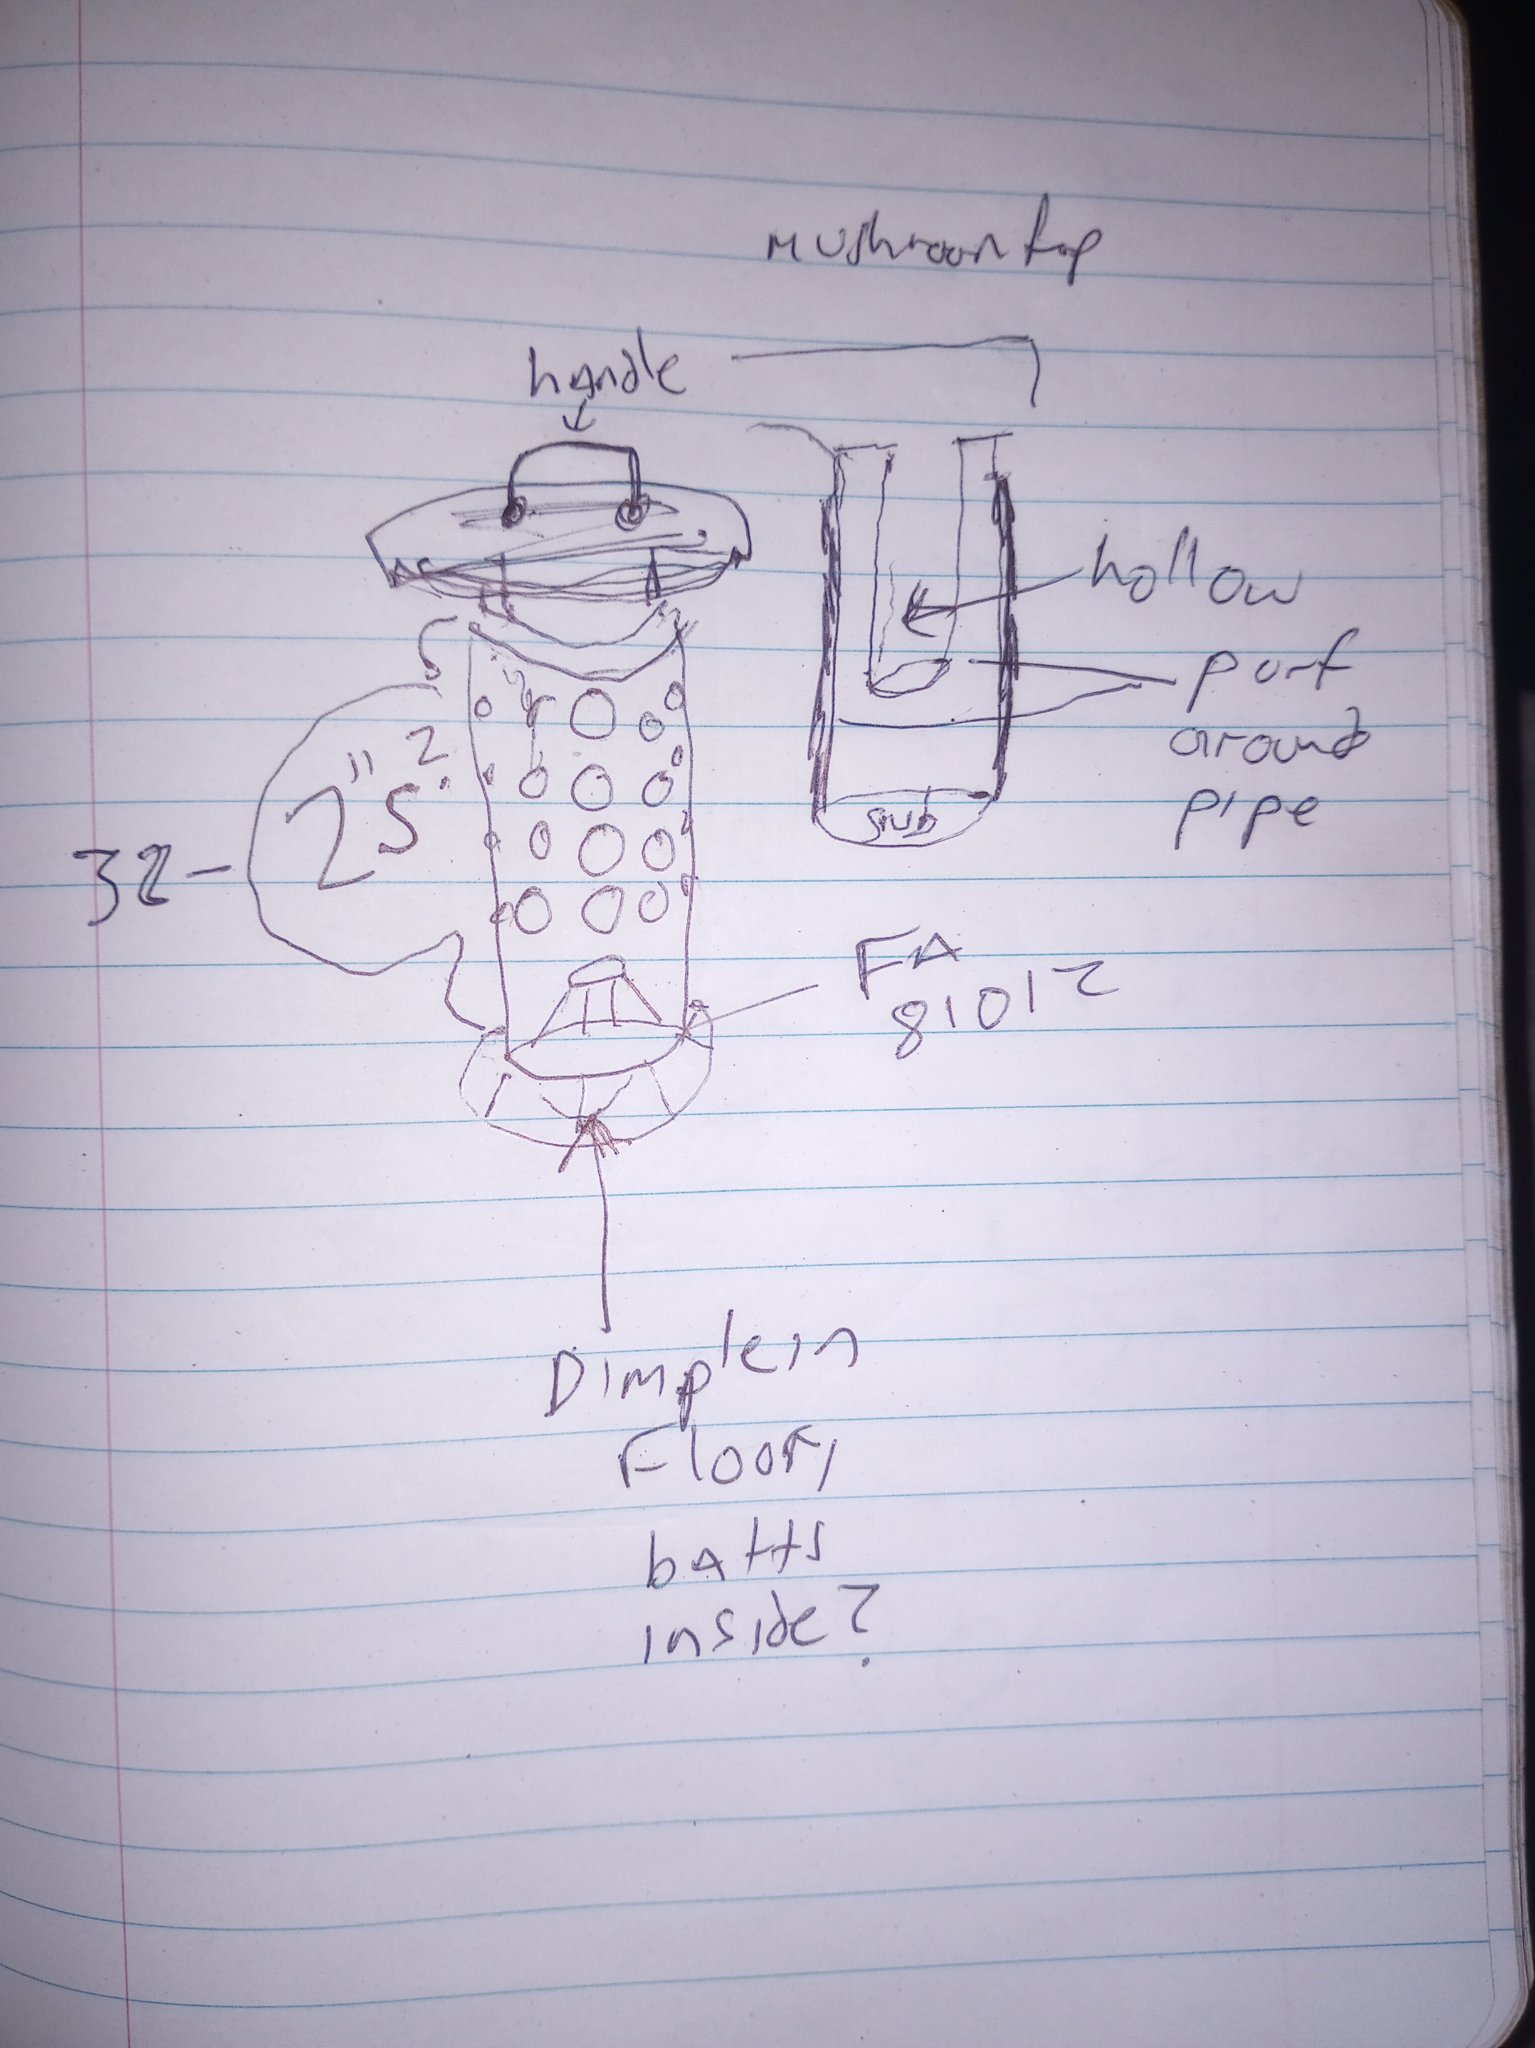 mushroom top
handle
hollow
port
around
pipe
2"s?
32-
FA
81012
Dimple in
Floor,
batts
inside?